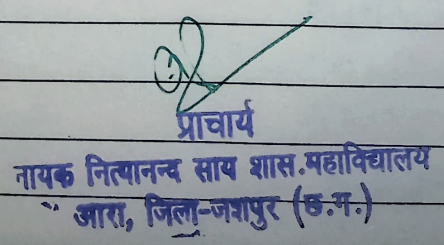 प्राचार्य
नायक नित्यानन्द साय शास.महाविद्यालय
आरा, जिला-जशपुर (छ.ग.)